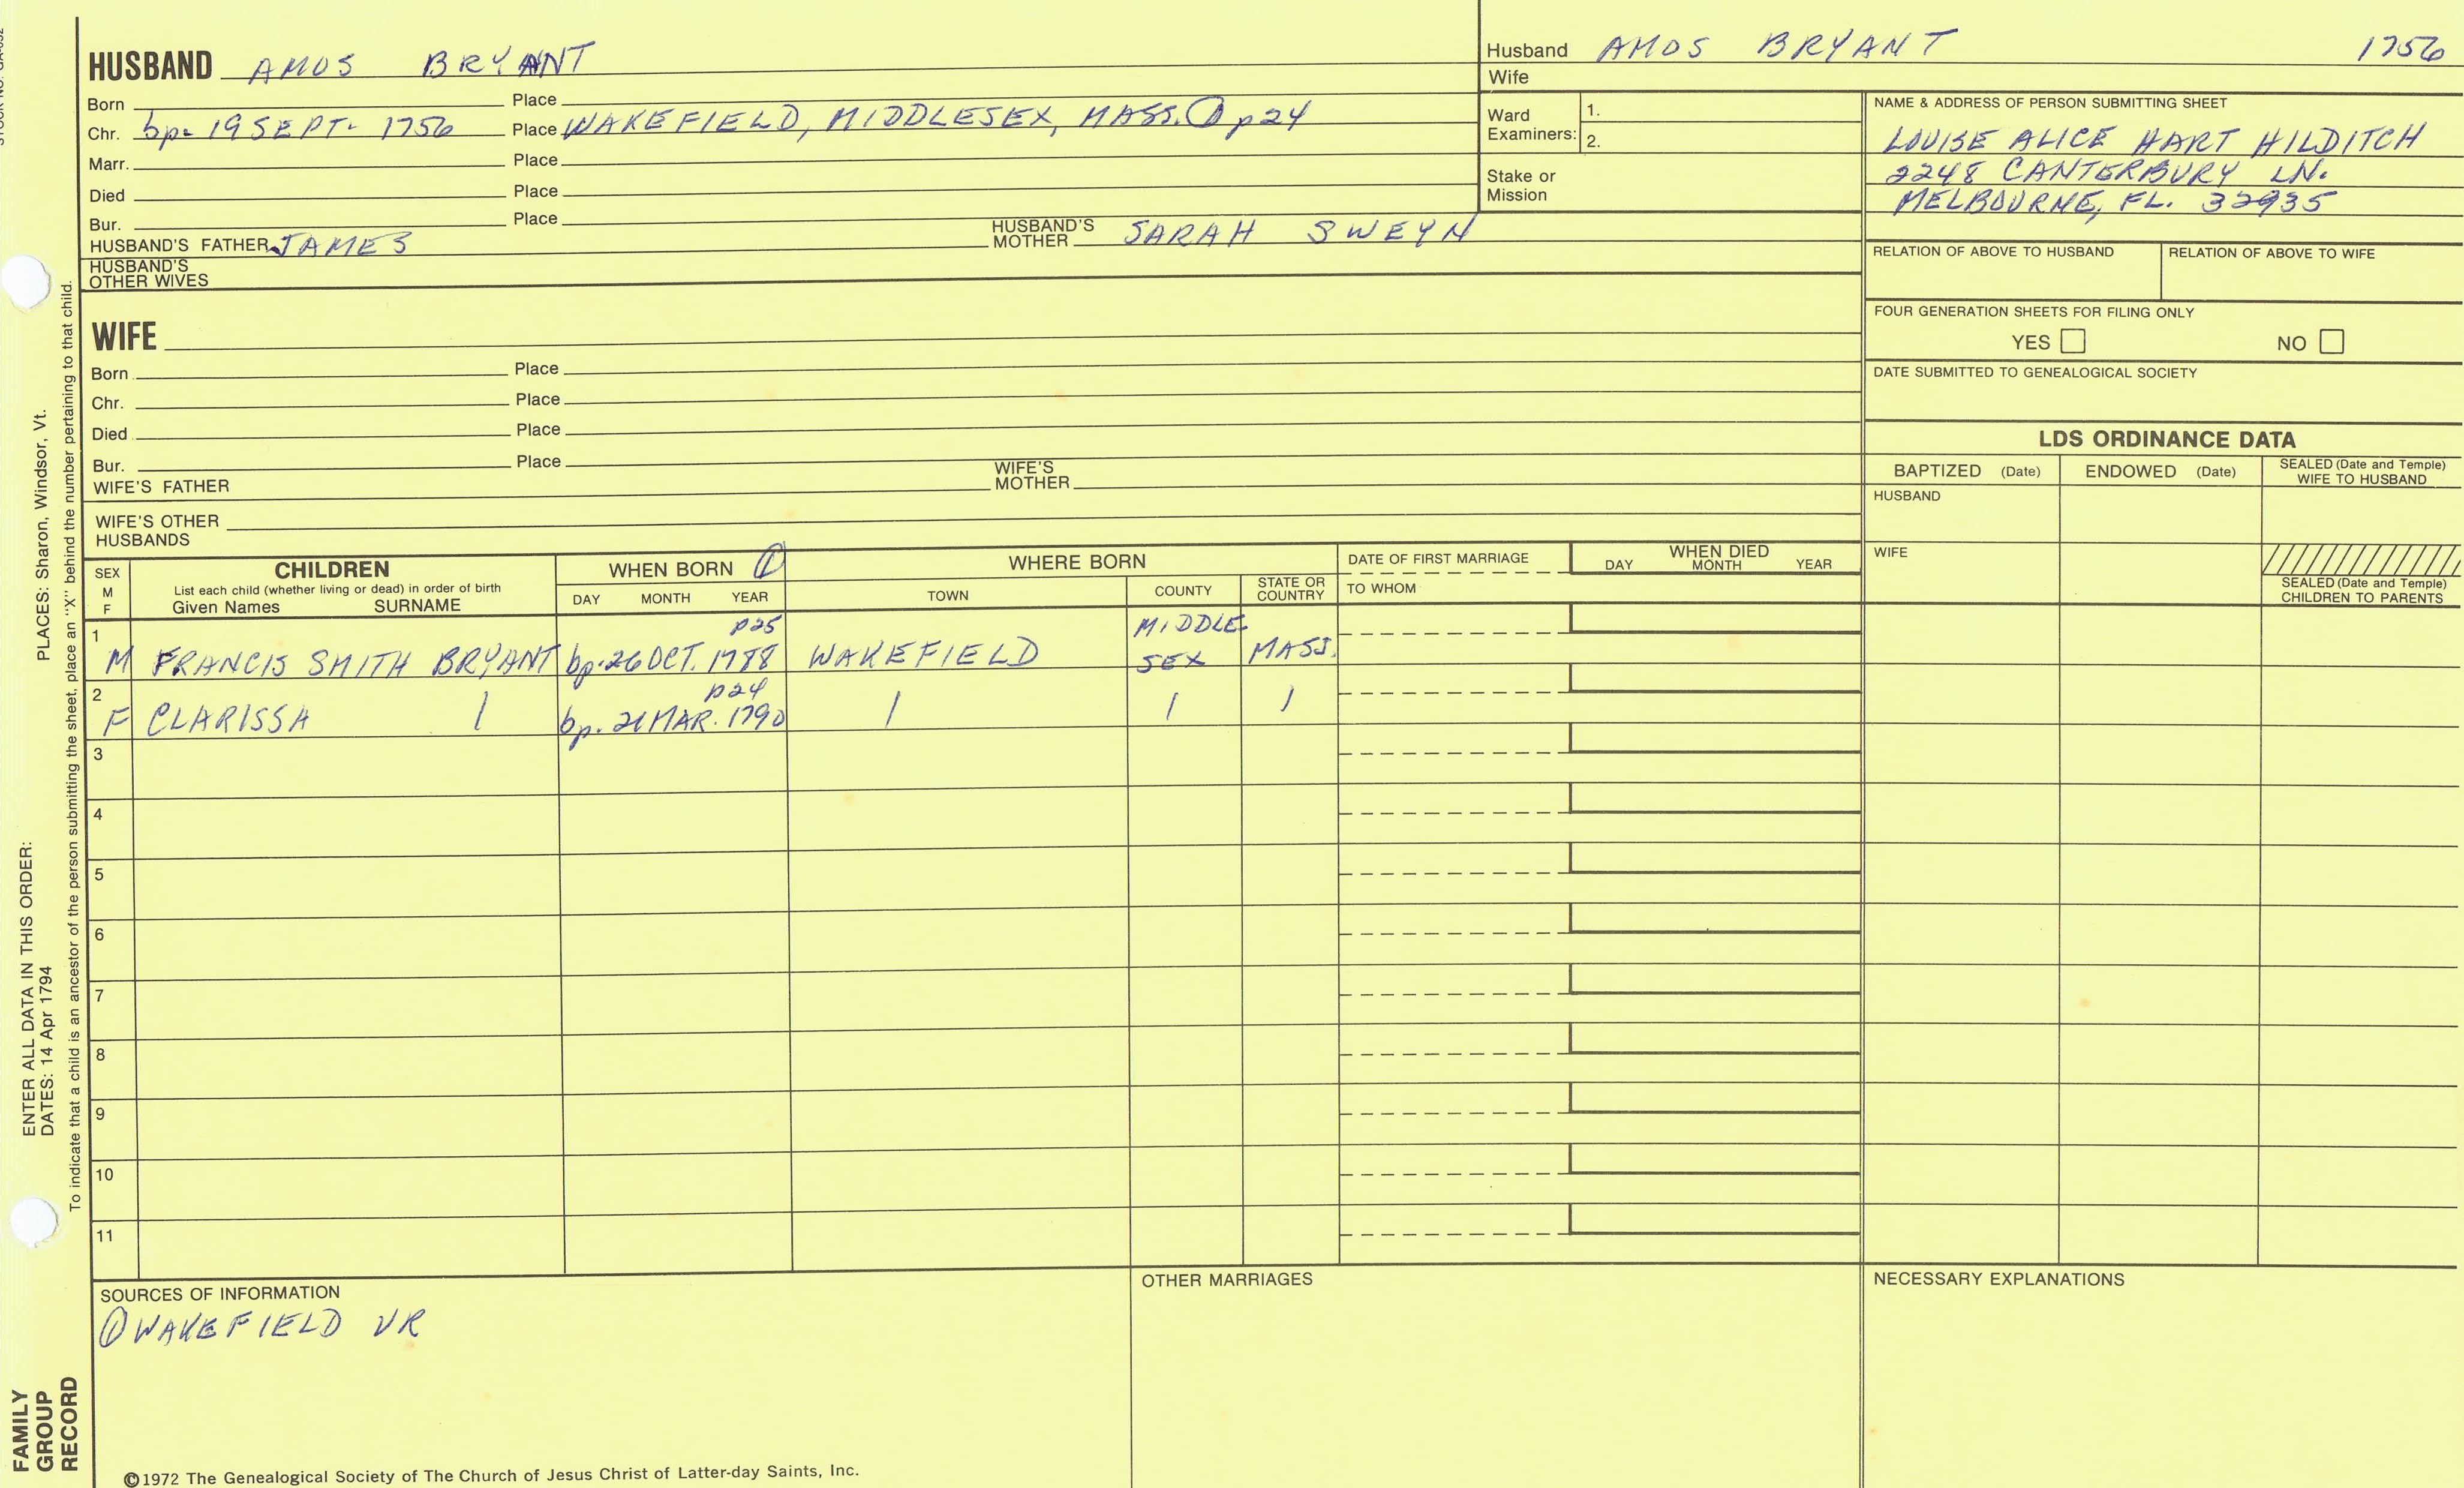 HUSBAND AMOS BRYANT
Born Place
Chr. bp. 19 SEPT. 1756 Place WAKEFIELD, MIDDLESEX, MASS. ① p24
Marr. Place
Died Place
Bur. Place
HUSBAND'S FATHER JAMES HUSBAND'S MOTHER SARAH SWEYN
HUSBAND'S OTHER WIVES
Husband AMOS BRYANT 1756
Wife
Ward Examiners: 1.
2.
Stake or Mission
NAME & ADDRESS OF PERSON SUBMITTING SHEET
LOUISE ALICE HART HILDITCH
2248 CANTERBURY LN.
MELBOURNE, FL. 32935
RELATION OF ABOVE TO HUSBAND RELATION OF ABOVE TO WIFE
FOUR GENERATION SHEETS FOR FILING ONLY
YES NO
DATE SUBMITTED TO GENEALOGICAL SOCIETY
WIFE
Born Place
Chr. Place
Died Place
Bur. Place
WIFE'S FATHER WIFE'S MOTHER
WIFE'S OTHER HUSBANDS
LDS ORDINANCE DATA
BAPTIZED (Date) ENDOWED (Date) SEALED (Date and Temple) WIFE TO HUSBAND
HUSBAND
WIFE
SEALED (Date and Temple) CHILDREN TO PARENTS
SEX M F CHILDREN WHEN BORN ① WHERE BORN DATE OF FIRST MARRIAGE WHEN DIED
List each child (whether living or dead) in order of birth
Given Names SURNAME DAY MONTH YEAR TOWN COUNTY STATE OR COUNTRY TO WHOM DAY MONTH YEAR
1 p25 MIDDLE-
M FRANCIS SMITH BRYANT bp. 26 OCT. 1788 WAKEFIELD SEX MASS.
2 p24
F CLARISSA | bp. 21 MAR. 1790 | | |
3
4
5
6
7
8
9
10
11
SOURCES OF INFORMATION
① WAKEFIELD VR
OTHER MARRIAGES
NECESSARY EXPLANATIONS
©1972 The Genealogical Society of The Church of Jesus Christ of Latter-day Saints, Inc.
FAMILY GROUP RECORD
ENTER ALL DATA IN THIS ORDER:
DATES: 14 Apr 1794
PLACES: Sharon, Windsor, Vt.
To indicate that a child is an ancestor of the person submitting the sheet, place an "X" behind the number pertaining to that child.